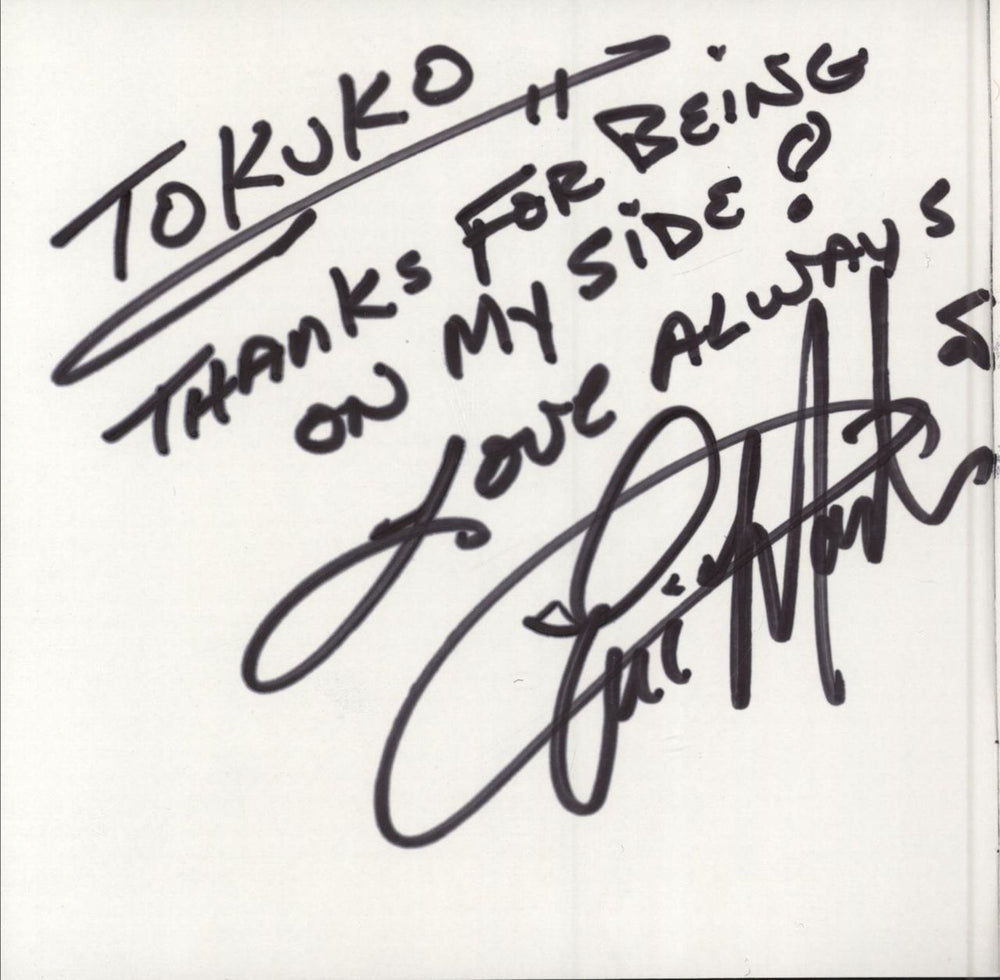 TOKUKO
THANKS FOR BEING
ON MY SIDE!
LOVE ALWAYS